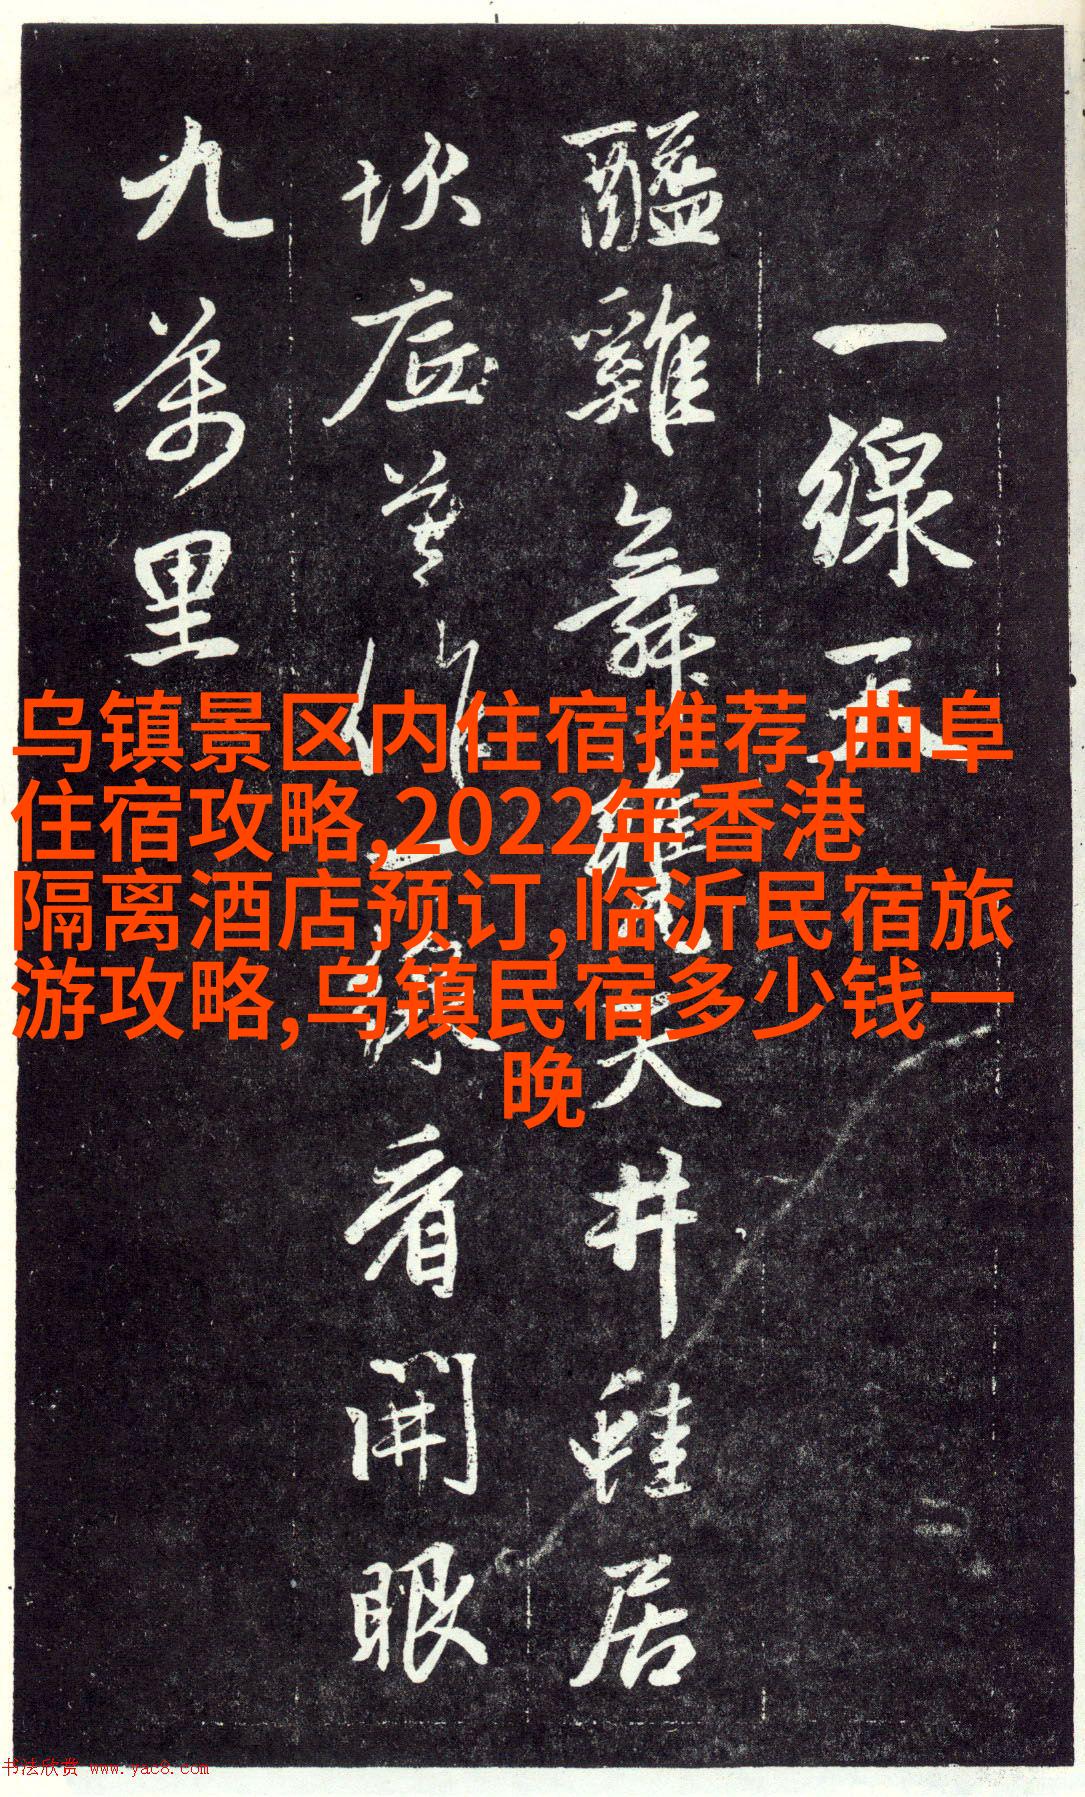 一線天
醯雞舞甕天井蛙居
坎底莫作一線看開眼
九萬里
乌镇景区内住宿推荐,曲阜
住宿攻略,2022年香港
隔离酒店预订,临沂民宿旅
游攻略,乌镇民宿多少钱一
晚
书法欣赏 www.yac8.com